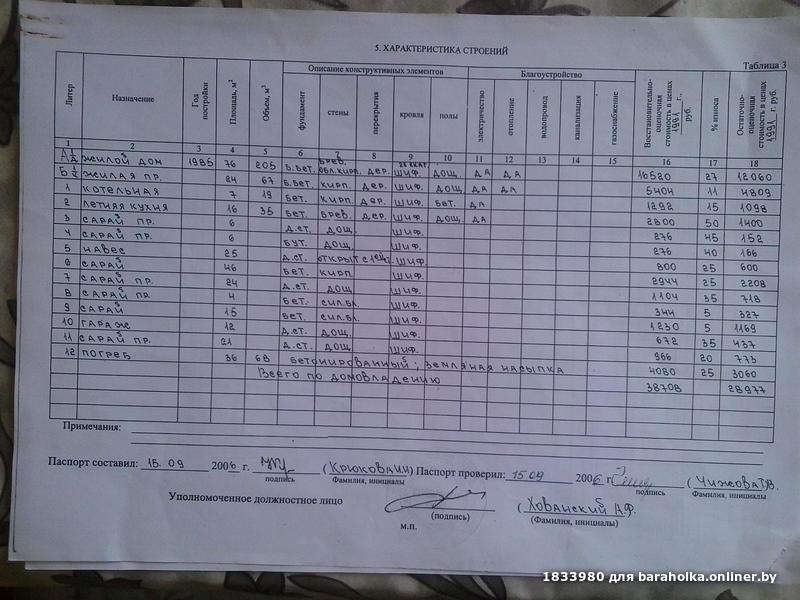 5. ХАРАКТЕРИСТИКА СТРОЕНИЙ
Таблица 3
Литер Назначение Год постройки Площадь, м² Объем, м³ Описание конструктивных элементов Благоустройство Восстановительно-оценочная стоимость в ценах 1991 г., руб. % износа Остаточно-оценочная стоимость в ценах 1991 г. руб.
фундамент стены перекрытия кровля полы электричество отопление водопровод канализация газоснабжение
1 2 3 4 5 6 7 8 9 10 11 12 13 14 15 16 17 18
А½ жилой дом 1985 76 205 Б.бет. брев. обл.кирп. дер. шиф. дощ. да да 16520 27 12060
Б½ жилая пр. 24 67 Б.бет. кирп. дер. шиф. дощ. да да 5404 11 4809
1 котельная 7 19 бет. кирп. дер. шиф. бет. да 1292 15 1098
2 летняя кухня 16 35 бет. брев. дер. шиф. дощ. да 2800 50 1400
3 сарай пр. 6 д.ст. дощ. шиф. 276 45 152
4 сарай пр. 6 бут. дощ. шиф. 276 40 166
5 навес 25 д.ст. открыт с шиф. 800 25 600
6 сарай 46 бет. кирп шиф. 2944 25 2208
7 сарай пр. 24 д.ст. дощ шиф. 1104 35 718
8 сарай пр. 4 бет. сил.бл. шиф. 344 5 327
9 сарай 15 бет. сил.бл. шиф. 1230 5 1169
10 гараж 12 д.ст. дощ. шиф. 672 35 437
11 сарай пр. 21 д.ст. дощ. шиф. 966 20 773
12 погреб 36 68 бетонированный; земляная насыпка 4080 25 3060
Всего по домовладению 38708 28977
Примечания:
Паспорт составил: 15.09 2006 г. (Крюкова Паспорт проверил: 15.09 2006 г. (Чижова Т.В.
подпись Фамилия, инициалы подпись Фамилия, инициалы
Уполномоченное должностное лицо (Хованский А.Ф.
(подпись) (Фамилия, инициалы)
м.п.
1833980 для baraholka.onliner.by